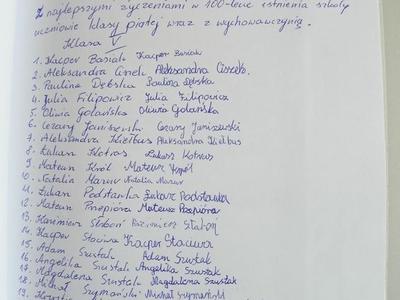 Z najlepszymi życzeniami w 100-lecie istnienia szkoły
uczniowie klasy piątej wraz z wychowawczynią.
Klasa V
1. Kacper Basiak Kacper Basiak
2. Aleksandra Cisek Aleksandra Cisek
3. Paulina Dębska Paulina Dębska
4. Julia Filipowicz Julia Filipowicz
5. Oliwia Golańska Oliwia Golańska
6. Cezary Janiszewski Cezary Janiszewski
7. Aleksandra Kiełbus Aleksandra Kiełbus
8. Łukasz Kotras Łukasz Kotras
9. Mateusz Król Mateusz Król
10. Natalia Mazur Natalia Mazur
11. Łukasz Podstawka Łukasz Podstawka
12. Mateusz Przepióra Mateusz Przepióra
13. Kazimierz Słaboń Kazimierz Słaboń
14. Kacper Stawiura Kacper
15. Adam Szustak Adam Szustak
16. Angelika Szustak Angelika Szustak
17. Magdalena Szustak Magdalena Szustak
18. Michał Szymański Michał Szymański
19.